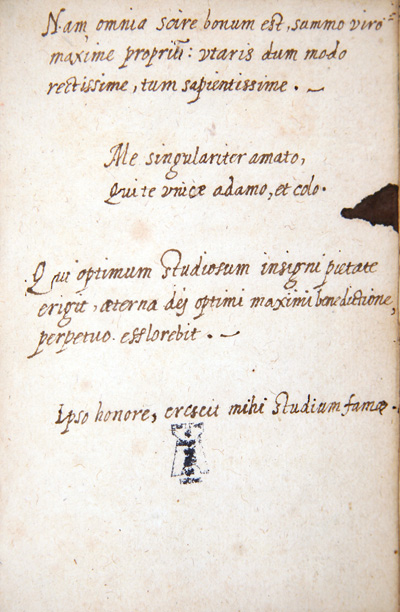 Nam omnia scire bonum est, summo viro
maxime propriũ: vtaris dum modo
rectissime, tum sapientissime.
Me singulariter amato,
Qui te vnicæ adamo, et colo.
Qui optimum studiosum insigni pietate
erigit, æterna dej optimi maximi benedictione,
perpetuo efflorebit.
Ipso honore, crescit mihi studium famæ.